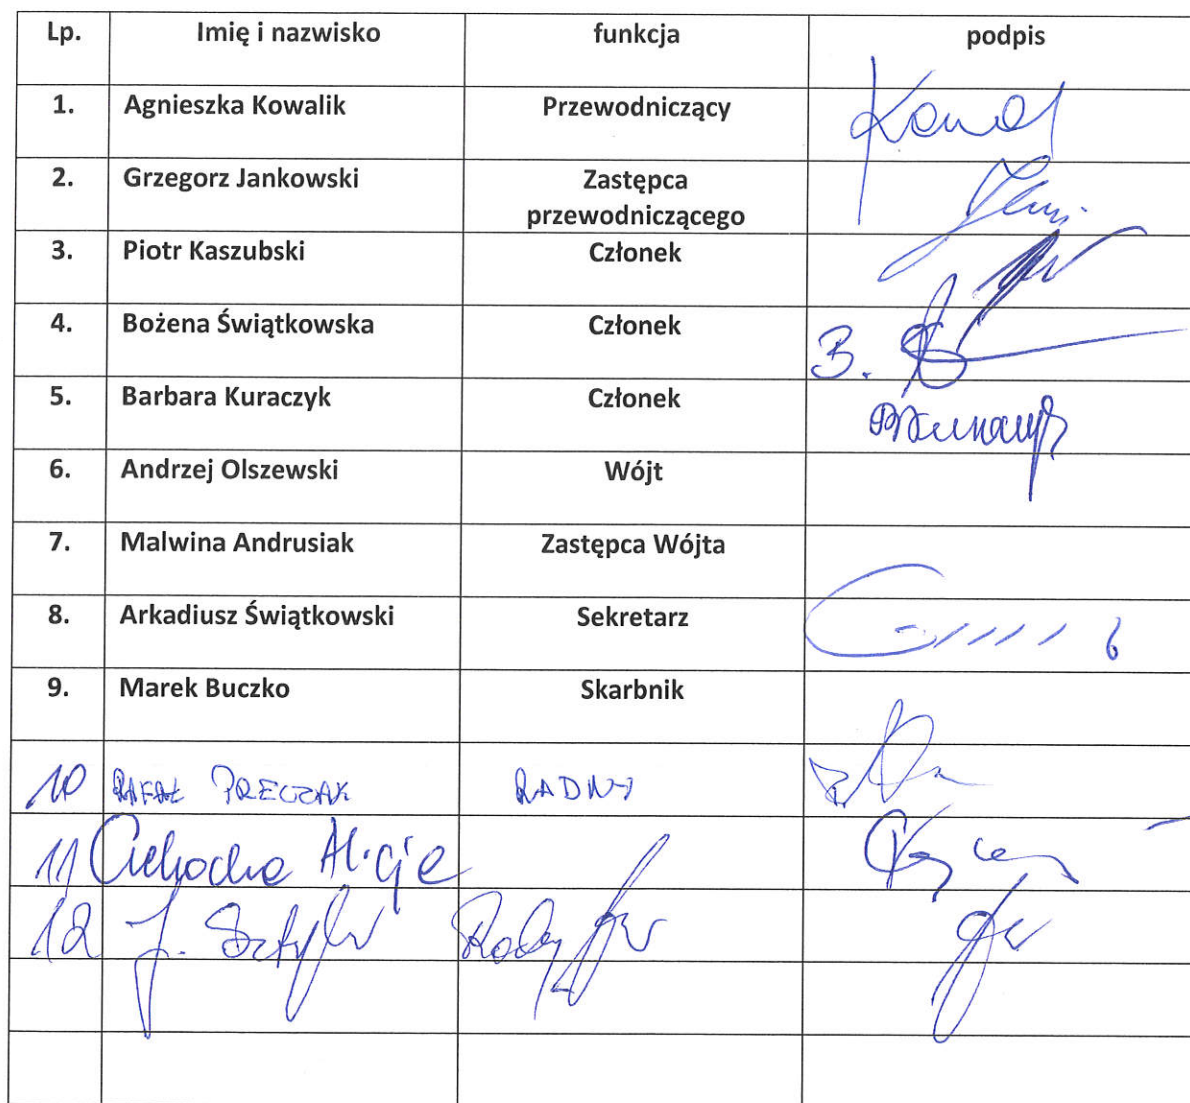 Lp. Imię i nazwisko funkcja podpis
1. Agnieszka Kowalik Przewodniczący
2. Grzegorz Jankowski Zastępca
przewodniczącego
3. Piotr Kaszubski Członek
4. Bożena Świątkowska Członek
5. Barbara Kuraczyk Członek
6. Andrzej Olszewski Wójt
7. Malwina Andrusiak Zastępca Wójta
8. Arkadiusz Świątkowski Sekretarz
9. Marek Buczko Skarbnik
10 RAFAŁ PRECZAK RADNY
11 Cichocka Alicja
12 J.